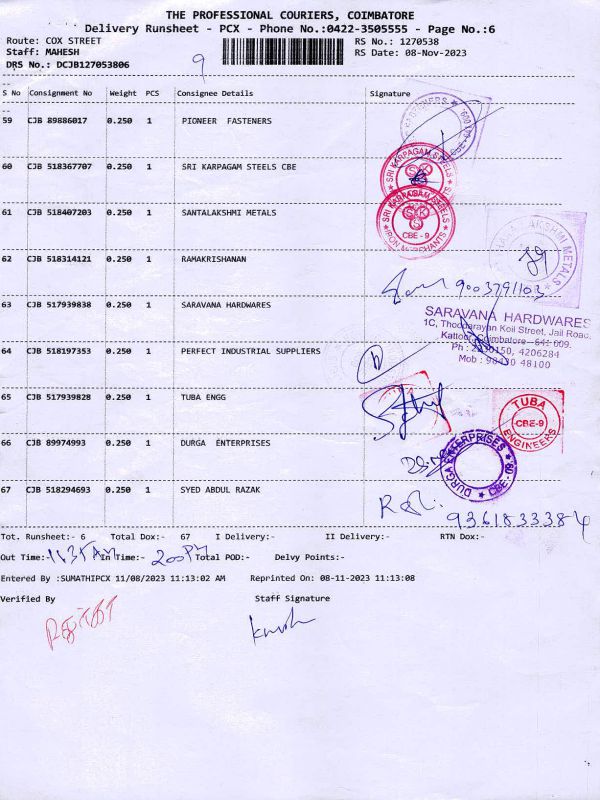 THE PROFESSIONAL COURIERS, COIMBATORE
Delivery Runsheet - PCX - Phone No.:0422-3505555 - Page No.:6
Route: COX STREET RS No.: 1270538
Staff: MAHESH RS Date: 08-Nov-2023
DRS No.: DCJB127053806 9
S No Consignment No Weight PCS Consignee Details Signature
59 CJB 89886017 0.250 1 PIONEER FASTENERS
60 CJB 518367707 0.250 1 SRI KARPAGAM STEELS CBE
SRI KARPAGAM STEELS
SKS
61 CJB 518407203 0.250 1 SANTALAKSHMI METALS
SRI KARPAGAM STEELS
SKS
CBE - 9
IRON MERCHANTS
62 CJB 518314121 0.250 1 RAMAKRISHANAN
9003791103
63 CJB 517939838 0.250 1 SARAVANA HARDWARES
SARAVANA HARDWARES
1C, Thodarayan Koil Street, Jail Road,
Kattoor, Coimbatore - 641 009.
64 CJB 518197353 0.250 1 PERFECT INDUSTRIAL SUPPLIERS
4206284
Mob : 98430 48100
65 CJB 517939828 0.250 1 TUBA ENGG
TUBA
CBE-9
ENGINEERS
66 CJB 89974993 0.250 1 DURGA ENTERPRISES
DURGA ENTERPRISES
CBE - 09
67 CJB 518294693 0.250 1 SYED ABDUL RAZAK
9361833384
Tot. Runsheet:- 6 Total Dox:- 67 I Delivery:- II Delivery:- RTN Dox:-
Out Time:- In Time:- 200 PM Total POD:- Delvy Points:-
Entered By :SUMATHIPCX 11/08/2023 11:13:02 AM Reprinted On: 08-11-2023 11:13:08
Verified By Staff Signature